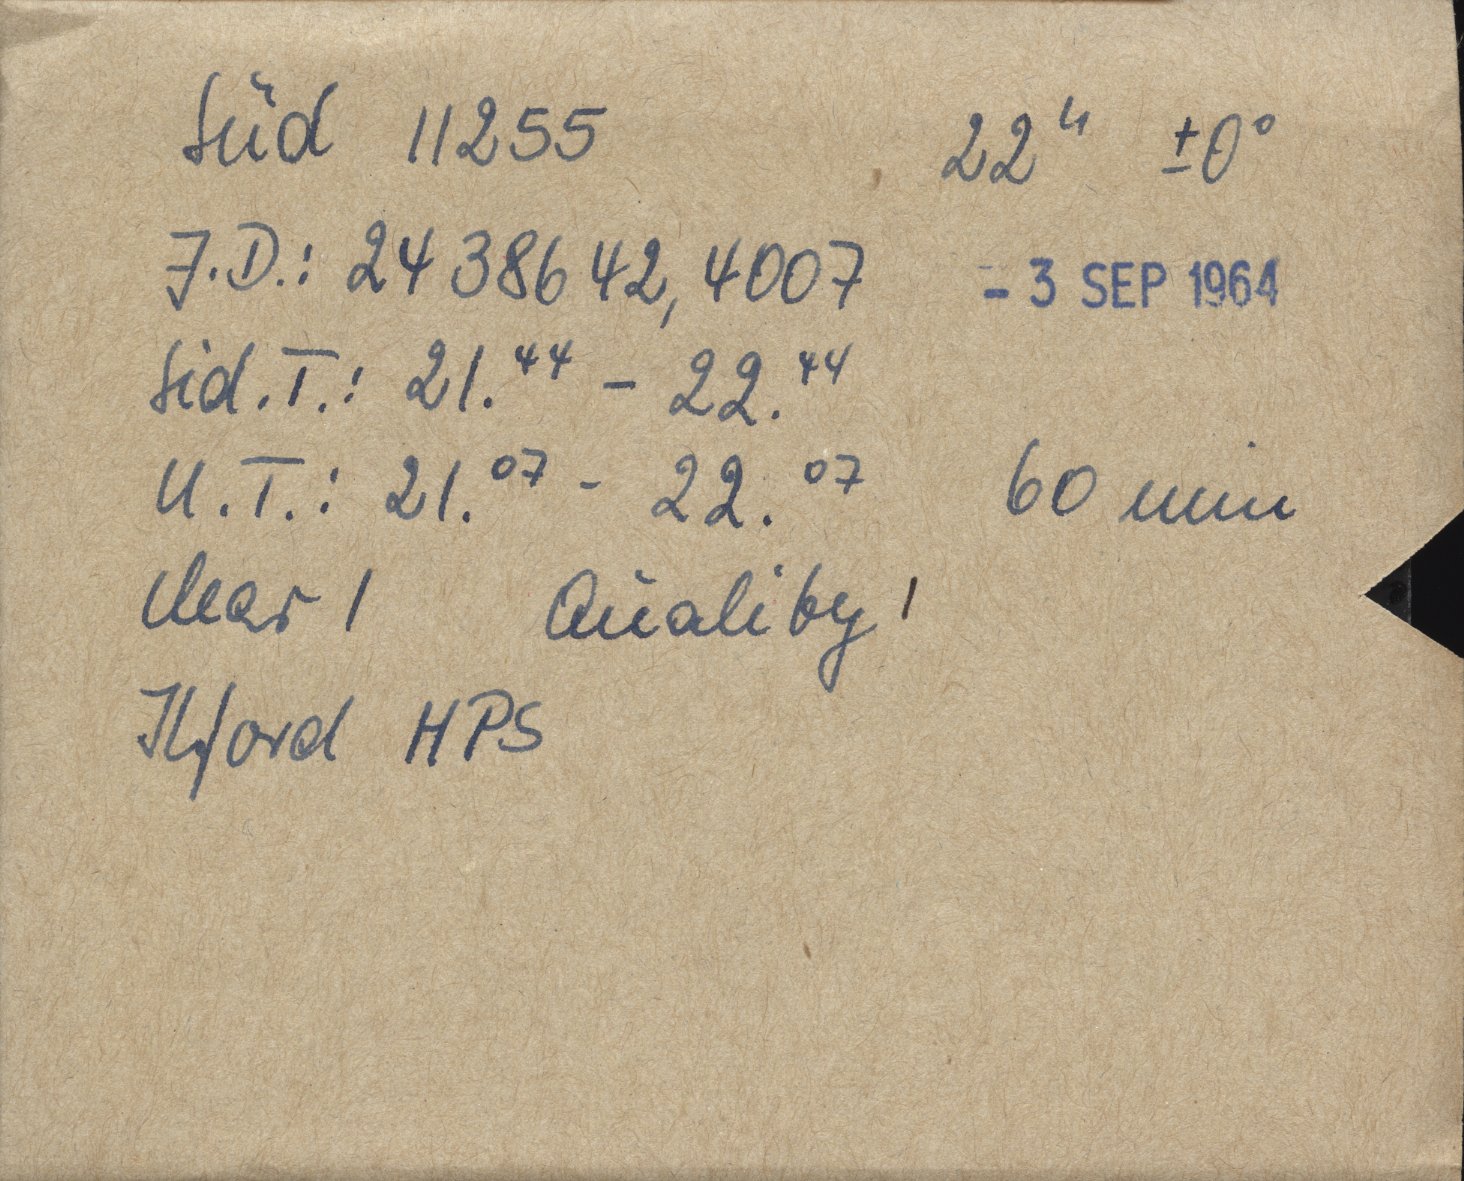 Süd 11255 22ʰ ±0°
J.D.: 2438642,4007 - 3 SEP 1964
Sid.T.: 21.⁴⁴ - 22.⁴⁴
U.T.: 21.⁰⁷ - 22.⁰⁷ 60 min
clear 1 Quality 1
Ilford HPS